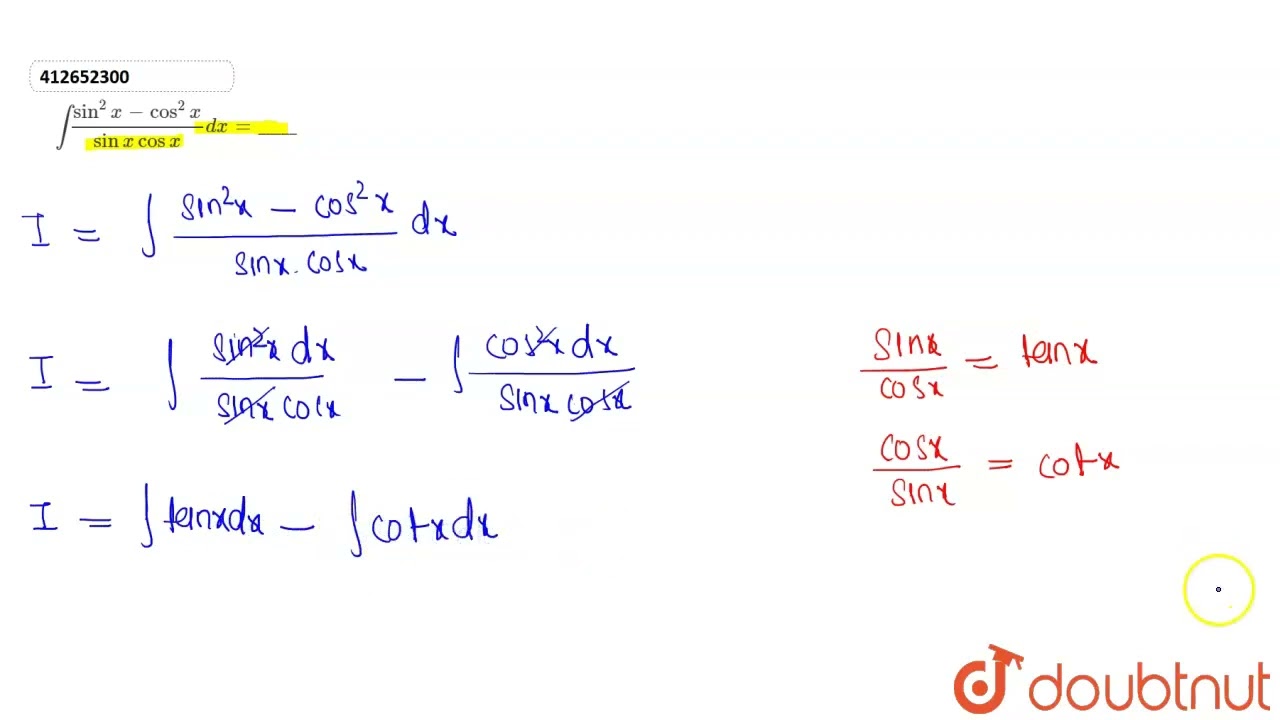 412652300
∫ sin² x − cos² x / sin x cos x dx = ___
I = ∫ sin²x − cos²x / sinx . cosx dx
I = ∫ sin²x dx / sinx cosx − ∫ cos²x dx / sinx cosx
sinx / cosx = tanx
cosx / sinx = cotx
I = ∫ tanx dx − ∫ cotx dx
doubtnut